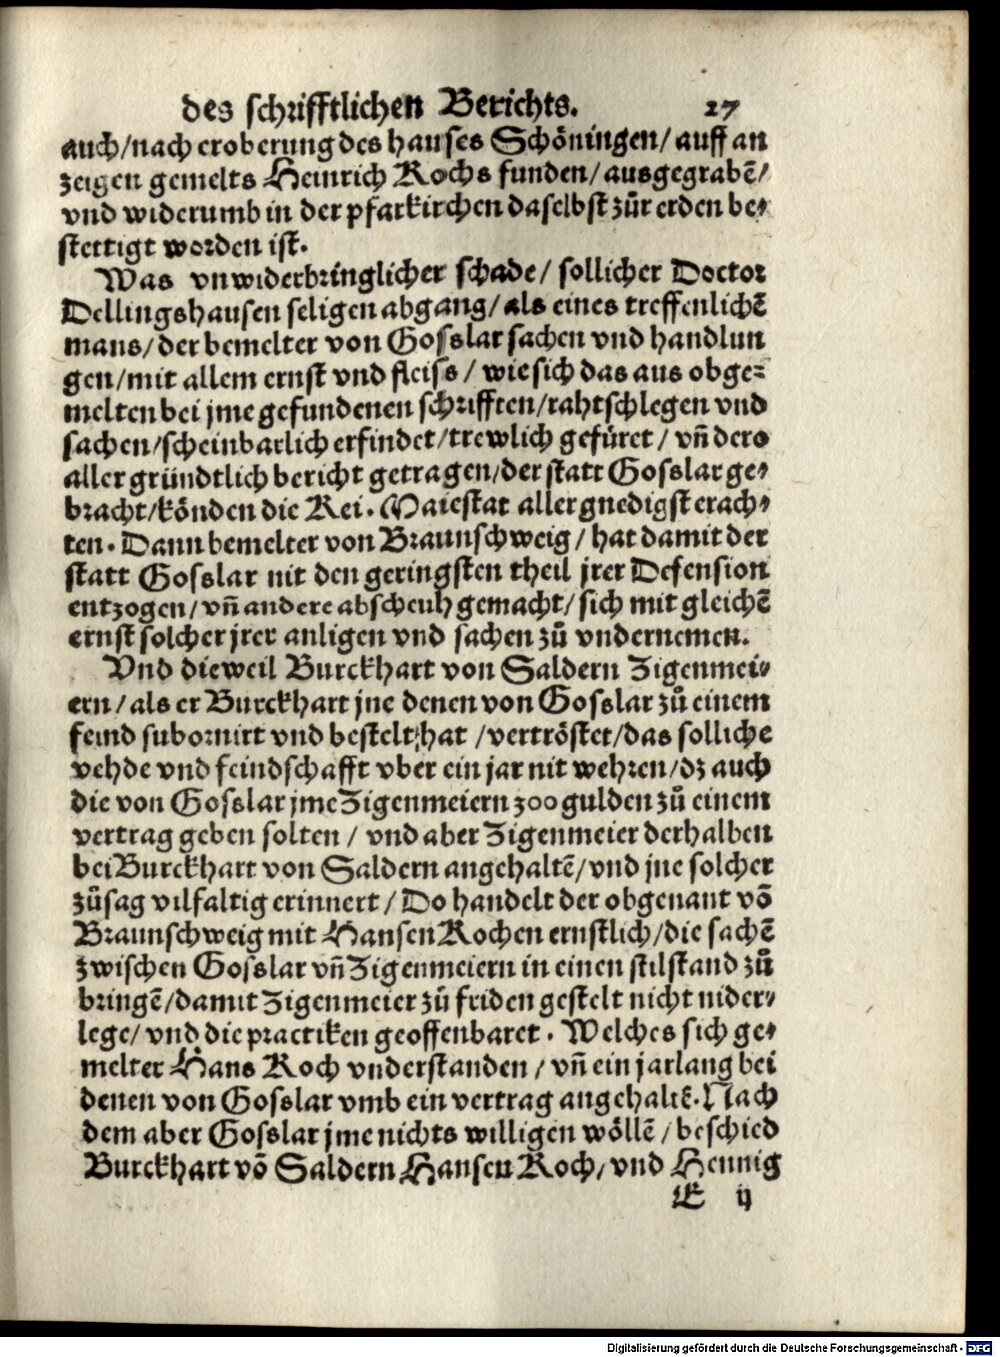 des schrifftlichen Berichts. 27
auch/nach eroberung des hauses Schöningen/auff an
zeigen gemelts Heinrich Kochs funden/ausgegrabē/
vnd widerumb in der pfarkirchen daselbst zůr erden be⸗
stettigt worden ist.
Was vnwiderbringlicher schade/ sollicher Doctor
Dellingshausen seligen abgang/als eines treffenlichē
mans/der bemelter von Gosslar sachen vnd handlun
gen/mit allem ernst vnd fleiss/ wie sich das aus obge⸗
melten bei jme gefundenen schrifften/rahtschlegen vnd
sachen/scheinbarlich erfindet/trewlich gefüret/ vn̄ dero
aller gründtlich bericht getragen/der statt Gosslar ge⸗
bracht/könden die Kei. Maiestat allergnedigst erach⸗
ten. Dann bemelter von Braunschweig/ hat damit der
statt Gosslar nit den geringsten theil jrer Defension
entzogen/vn̄ andere abscheuh gemacht/ sich mit gleichē
ernst solcher jrer anligen vnd sachen zů vndernemen.
Vnd dieweil Burckhart von Saldern Zigenmei⸗
ern/als er Burckhart jne denen von Gosslar zů einem
feind subornirt vnd bestelt hat /vertröstet/das solliche
vehde vnd feindschafft vber ein jar nit wehren/dz auch
die von Gosslar jme Zigenmeiern 300 gulden zů einem
vertrag geben solten/ vnd aber Zigenmeier derhalben
bei Burckhart von Saldern angehaltē/vnd jne solcher
zůsag vilfaltig erinnert/Do handelt der obgenant vō
Braunschweig mit Hansen Kochen ernstlich/die sachē
zwischen Gosslar vn̄ Zigenmeiern in einen stilstand zů
bringē/damit Zigenmeier zů friden gestelt nicht nider⸗
lege/ vnd die practiken geoffenbaret. Welches sich ge⸗
melter Hans Koch vnderstanden/ vn̄ ein jarlang bei
denen von Gosslar vmb ein vertrag angehaltē. Nach
dem aber Gosslar jme nichts willigen wöllē/ beschied
Burckhart vō Saldern Hansen Koch/ vnd Hennig
E ij
Digitalisierung gefördert durch die Deutsche Forschungsgemeinschaft - DFG